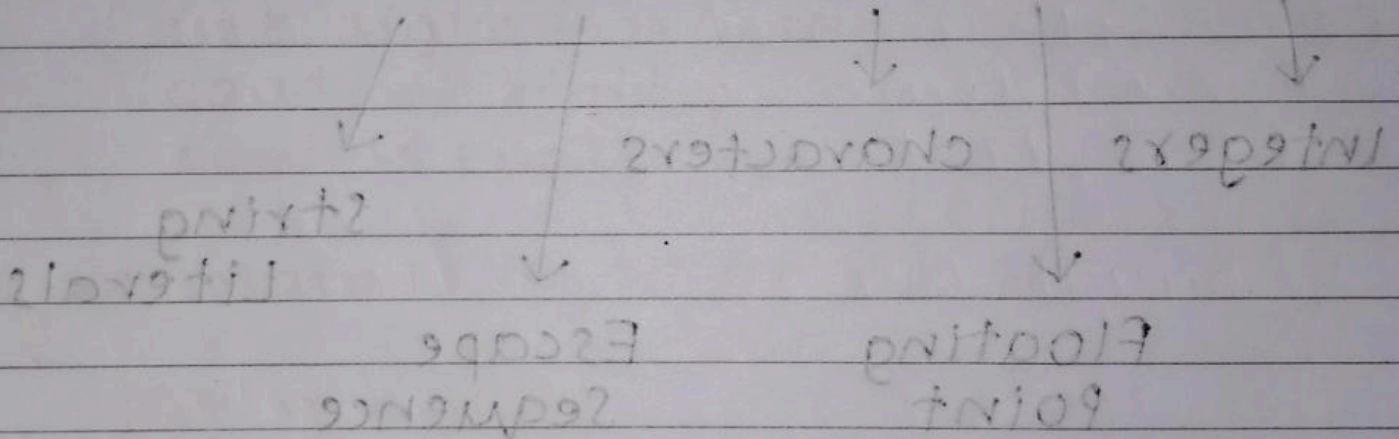 Integers
Characters
String
Literals
Floating
Point
Escape
Sequence